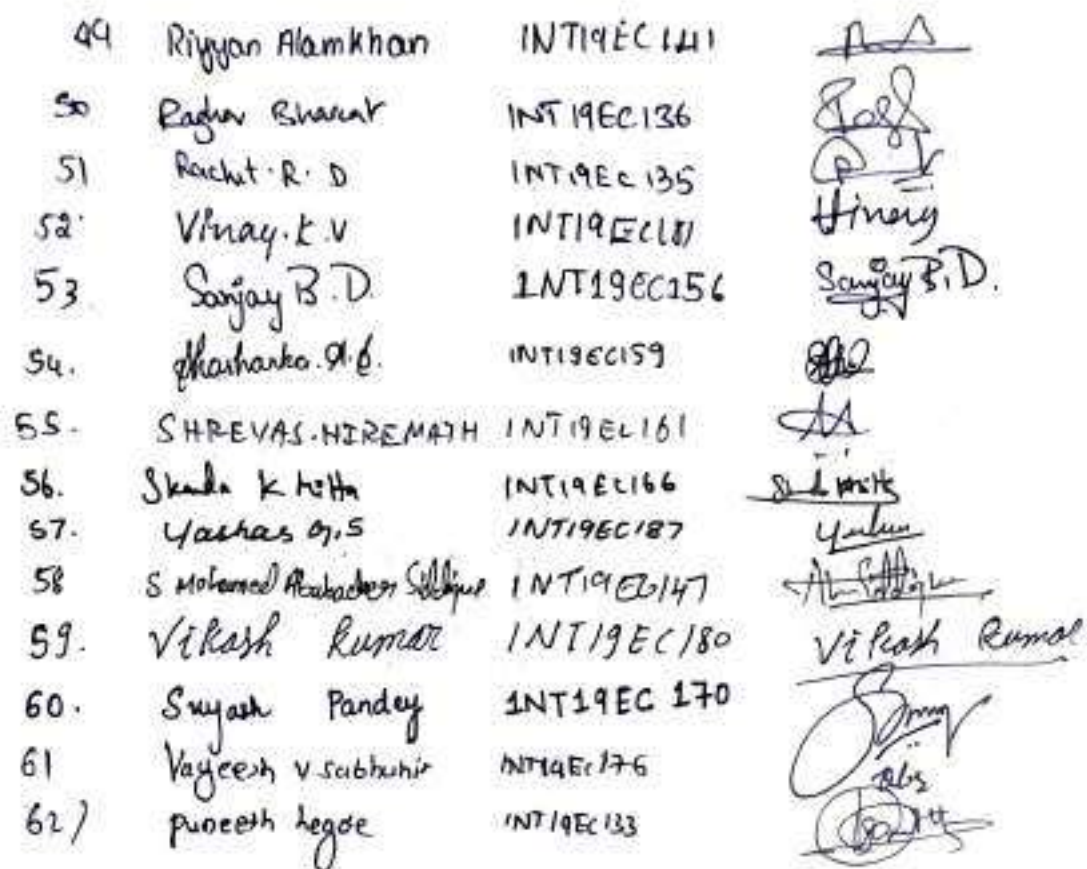 49 Riyyan Alamkhan 1NT19EC141
50 Raghav Bharat 1NT19EC136
51 Rachit.R.D 1NT19EC135
52 Vinay.K.V 1NT19EC181
53 Sanjay B.D. 1NT19EC156 Sanjay B.D.
54. 1NT19EC159
55. SHREYAS.HIREMATH 1NT19EC161
56. Skanda K 1NT19EC166
57. Yashas G.S 1NT19EC187
58 S Mohamed Siddique 1NT19EC147
59. Vikash Kumar 1NT19EC180 Vikash Kumar
60. Suyash Pandey 1NT19EC 170
61 Vageesh V 1NT19EC176
62) puneeth hegde 1NT19EC133